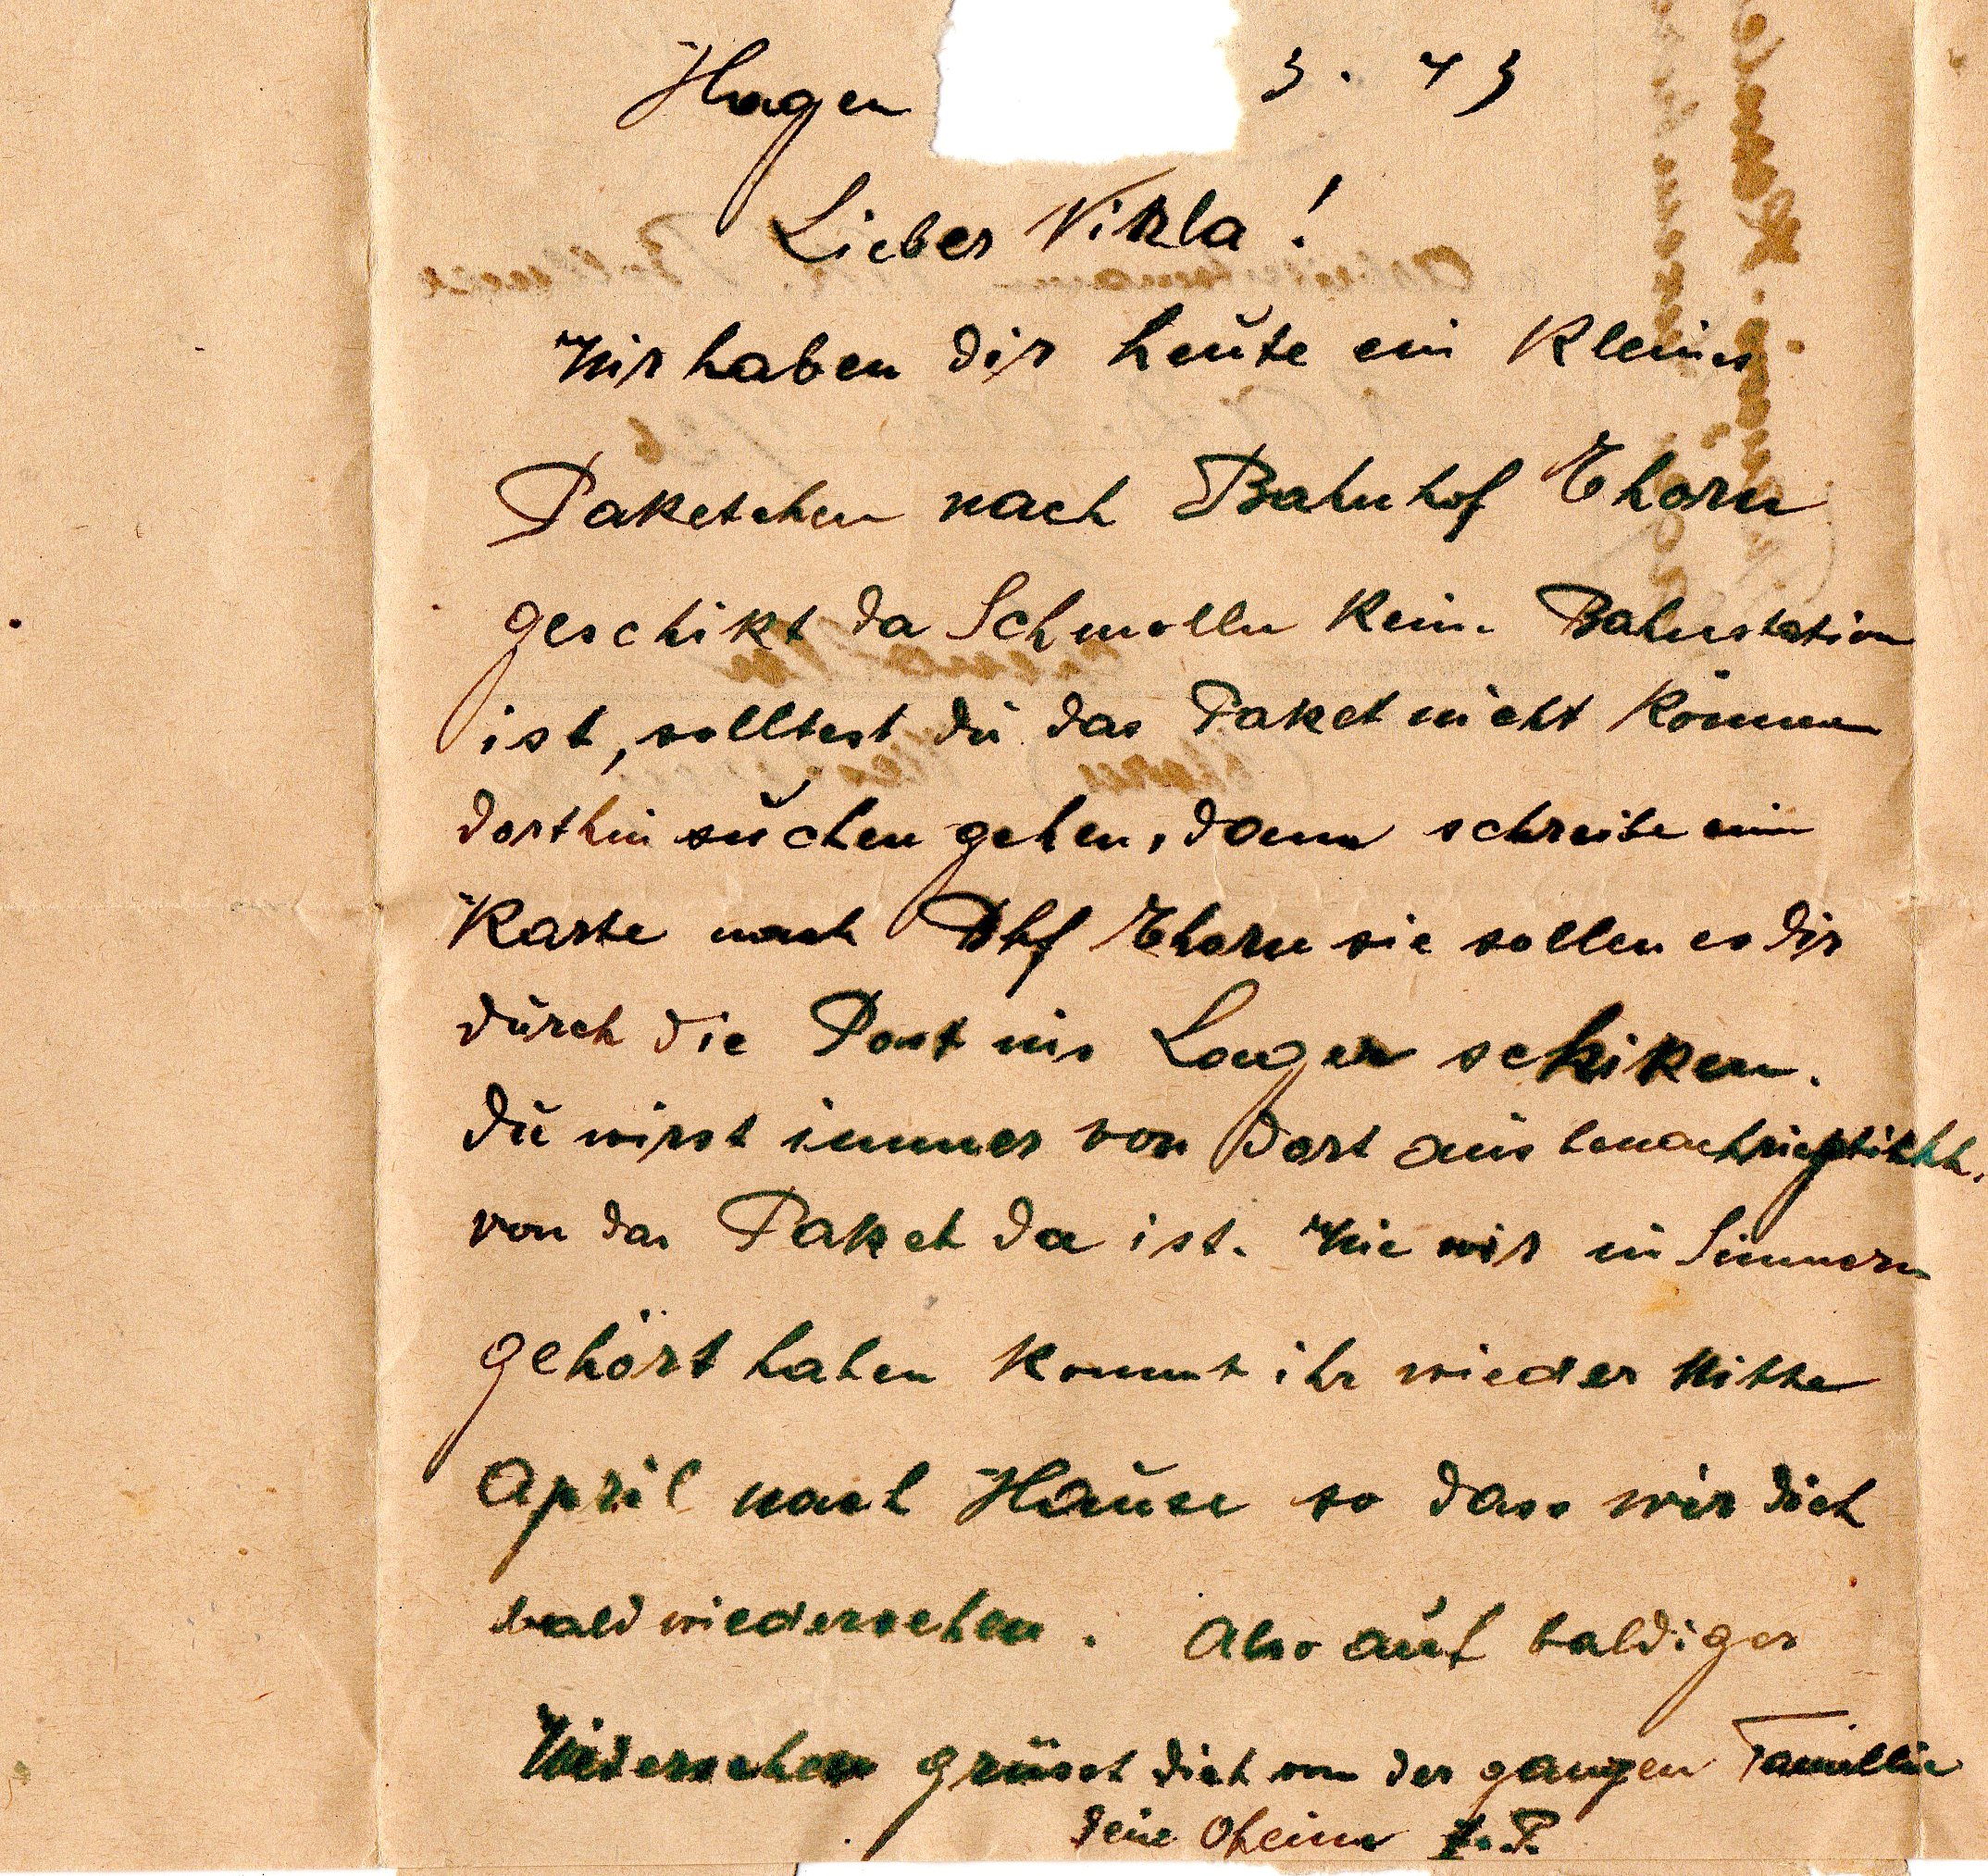 Hagen 3. 43
Lieber Nikla!
Wir haben dir heute ein kleines
Paketchen nach Bahnhof Thorn
geschikt da Schmolln keine Bahnstation
ist, solltest du das Paket nicht können
dorthin suchen gehen, dann schreibe ein
Karte nach Bhf Thorn sie sollen es dir
durch die Post ins Lager schiken.
du wirst immer von dort aus
von das Paket da ist. Wie wir in Simmern
gehört haben kommt ihr wieder Mitte
April nach Hause so dass wir dich
bald wiedersehen. Also auf baldiges
Widersehen grüsst dich von der ganzen Familie
deine Oheim